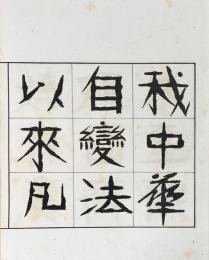 我中華
自變法
以來凡